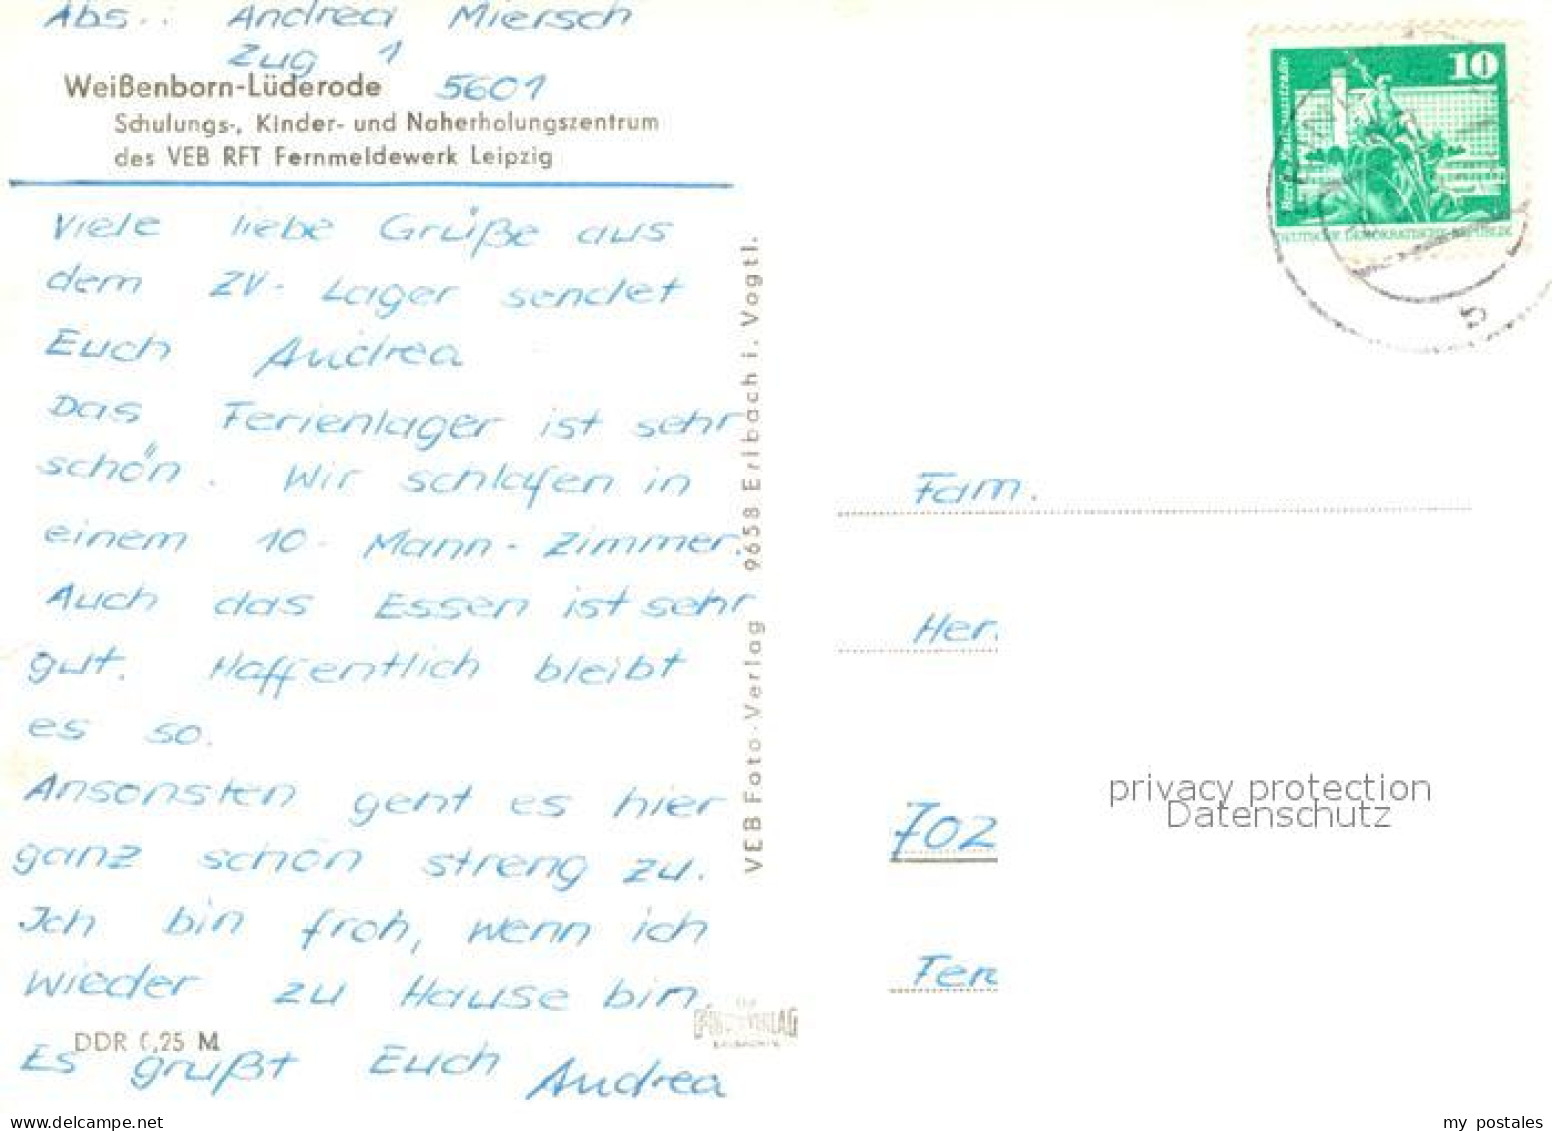 Abs.: Andrea Miersch
Zug 1
Weißenborn-Lüderode 5601
Schulungs-, Kinder- und Naherholungszentrum
des VEB RFT Fernmeldewerk Leipzig
Viele liebe Grüße aus
dem ZV-Lager sendet
Euch Andrea
Das Ferienlager ist sehr
schön. Wir schlafen in
einem 10-Mann-Zimmer.
Auch das Essen ist sehr
gut. Haffentlich bleibt
es so.
Ansonsten geht es hier
ganz schön streng zu.
Ich bin froh, wenn ich
wieder zu Hause bin
Es grüßt Euch Andrea
DDR 0,25 M
VEB Foto-Verlag 9658 Erlbach i. Vogtl.
FOTO-VERLAG
ERLBACH
10
DEUTSCHE DEMOKRATISCHE REPUBLIK
5
Fam.
Her.
702
privacy protection
Datenschutz
my postales